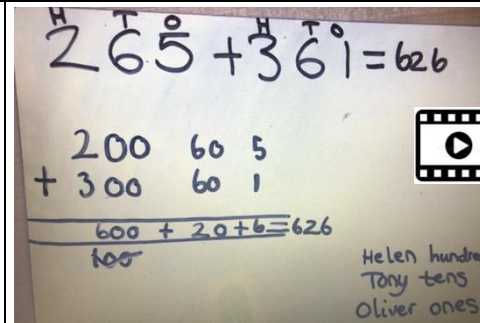 H T O H T O
265 + 361 = 626
200 60 5
+ 300 60 1
600 + 20 + 6 = 626
100
Helen hundre
Tony tens
Oliver ones